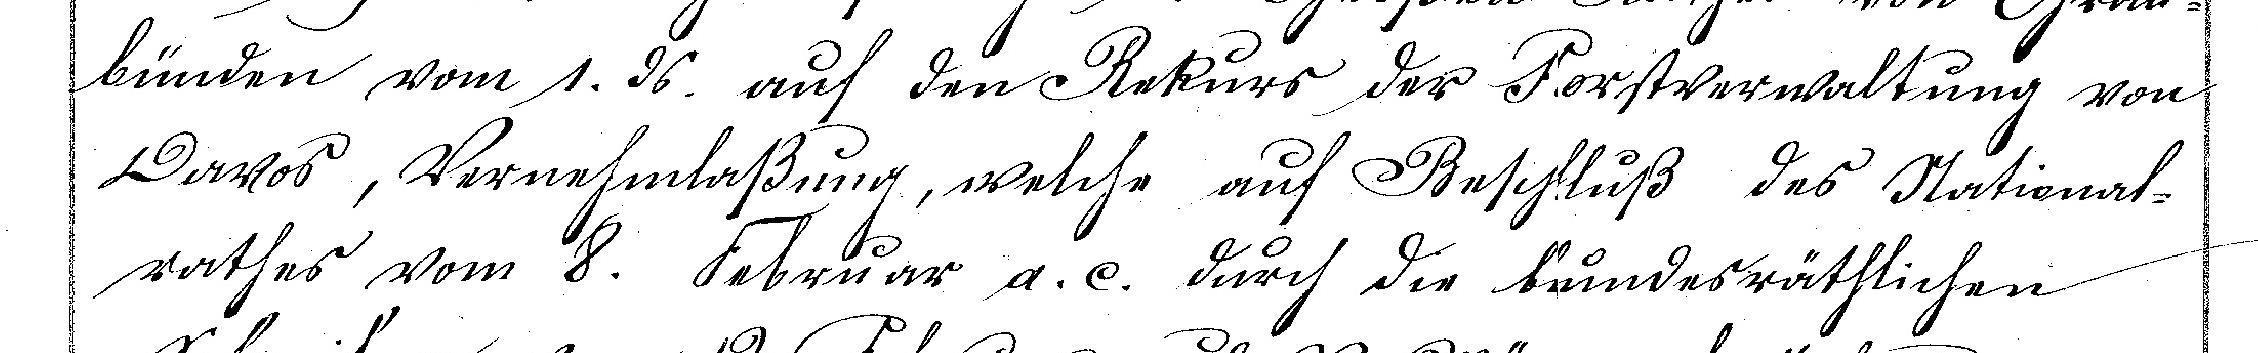 von Grau-
bünden vom 1. ds. auf den Rekurs der Forstverwaltung von
Davos, Vernehmlaßung, welche auf Beschluß des National-
rathes vom 8. Februar a. c. durch die bundesräthlichen